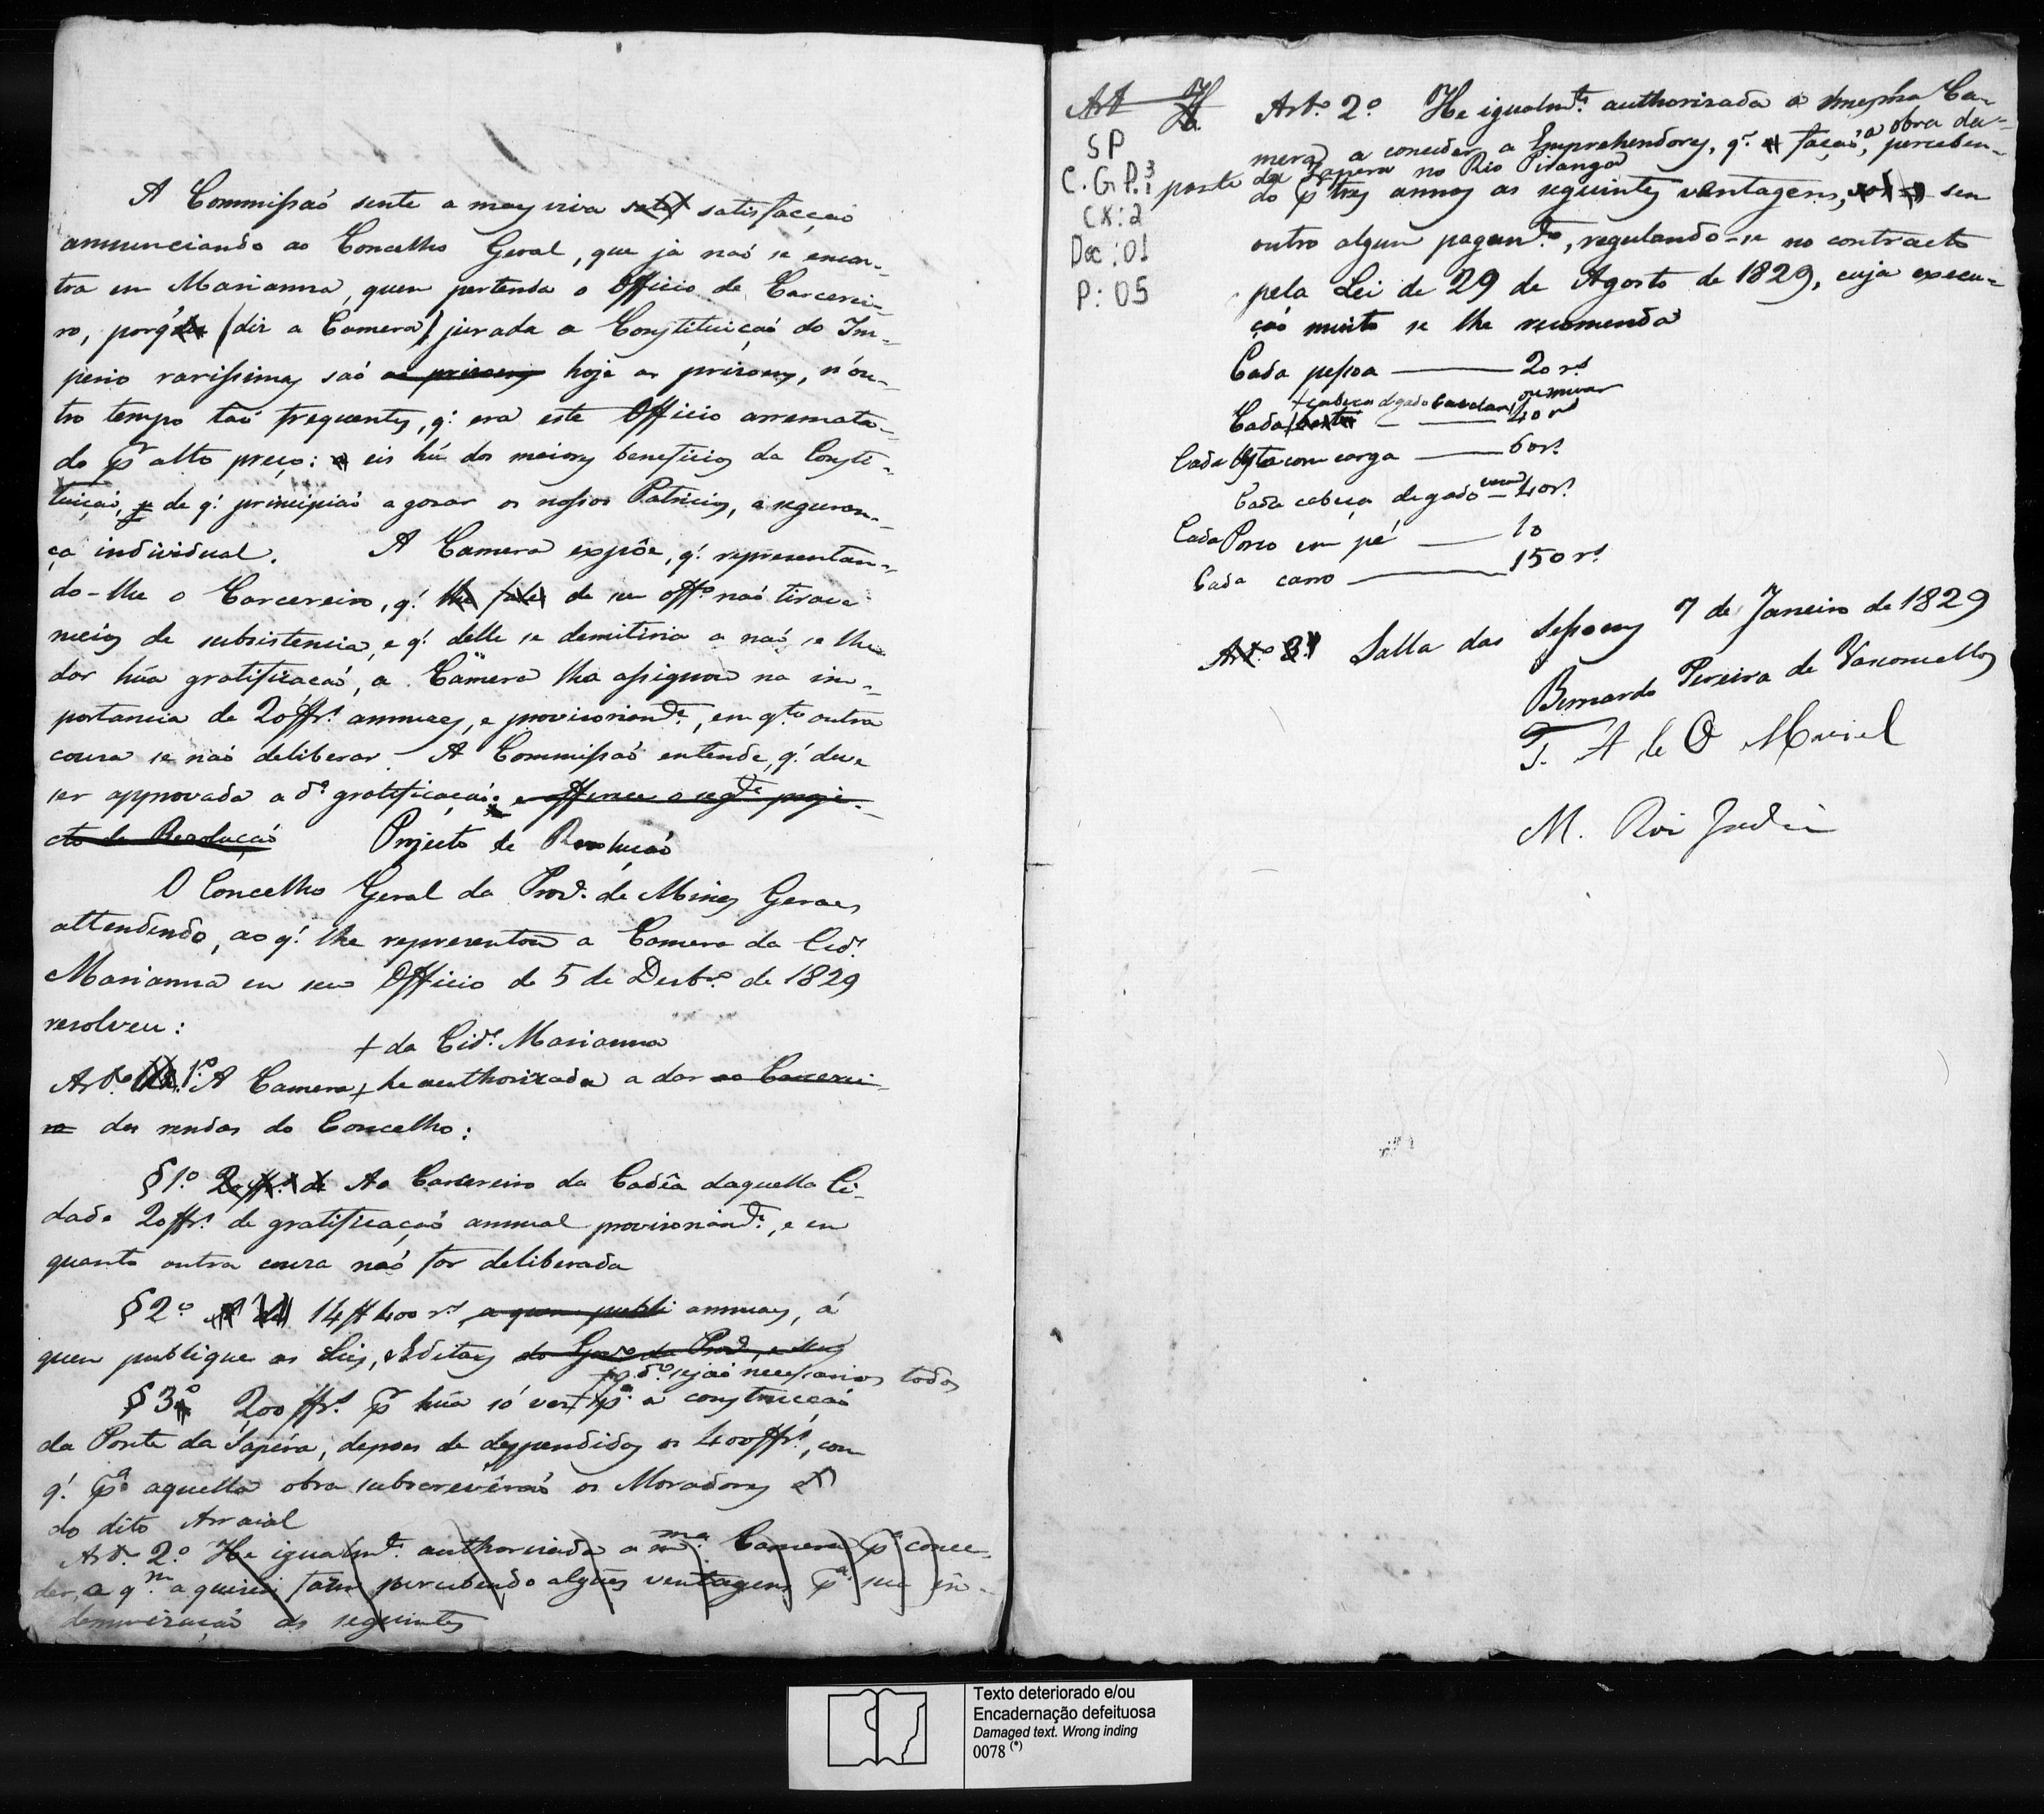 A Commissaõ sente a mays viva satisfacçaõ
annunciando ao Concelho Geral, que já naõ se encon-
tra em Marianna, quem pertenda o Officio de Carcerei-
ro, porq̃ (diz a Camera) jurada a Constituiçaõ do Im-
perio rarissimas saõ as prisoens hoje as prisoens, n'ou-
tro tempo taõ frequentes, q.' era este Officio arremata-
do pr alto preço: eis hũ dos maiores beneficios da Consti-
tuiçaõ, de q.' principiaõ a gosar os nossos Patricios, a seguran-
ça individual. A Camera expõe, q.' representan-
do-lhe o Carcereiro, q.' de seu offo. naõ tirava
meios de subsistencia, e q.' delle se demitiria a naõ se lhe
dar hũa gratificaçaõ, a Camera lha assignou na im-
portancia de 20$rs. annuaes, e provisoriamte., em qto. outra
cousa se naõ deliberar. A Commissaõ entende, q.' deve
ser approvada a da. gratificaçaõ: e offerece o segte. proje-
cto de Resoluçaõ Projecto de Resoluçaõ
O Concelho Geral da Prov.a de Minas Geraes
attendendo, ao q.' lhe representou a Camera da Cide.
Marianna em seu Officio de 5 de Dezbro. de 1829
resolveu:
+ da Cide. Marianna
Arto. 1.o A Camera + he authorizada a dar ao Carcerei-
ro das rendas do Concelho:
§ 1.o Ao Carcereiro da Cadêa daquella Ci-
dade 20$rs. de gratificaçaõ annual provisoriamte., e em
quanto outra cousa naõ for deliberada
§ 2.o 14$400 rs a quem publi annuaes, á
quem publique as Leis, e Editaes do Govo. da Prova. e seus
qdo. sejaõ necessarios todos
§ 3.o 200$rs. pr hũa só vez + pa. a construcçaõ
da Ponte da Tapéra, depois de despendidos os 400$rs., com
q.' pa. aquella obra subscrevêraõ os Moradores
do dito Arraial
Arto. 2.o He igualmte. authorizada a ma. Camera pa conce-
der, a qm. a queira fazer percebendo algũas ventagens pa. sua in-
demnizaçaõ as seguintes
Art
SP
C.G P.1 3
CX: 2
Doc: 01
P: 05
Arto. 2.o He igualmte. authorizada a mesma Ca-
mera a conceder a Emprehendores, q.' façaõ a obra da
ponte da Tapera no Rio Piranga, perceben-
do pr tres annos as seguintes ventagens, sem
outro algum pagamto., regulando-se no contracto
pela Lei de 29 de Agosto de 1829, cuja execu-
çaõ muito se lhe recomenda
Cada pessoa — 20 rs
+ cabeça de gado cavalar, ou muar
Cada + besta — 40 rs
Cada besta com carga — 60 rs.
Cada cabeça de gado vacum — 40 rs.
Cada Porco em pé — 10
Cada carro — 150 rs
Arto. 3.o Salla das Sessoens 7 de Janeiro de 1829
Bernardo Pereira de Vasconcellos
T. A de O Maciel
M. Roi Jardim
Texto deteriorado e/ou
Encadernação defeituosa
Damaged text. Wrong inding
0078 (*)